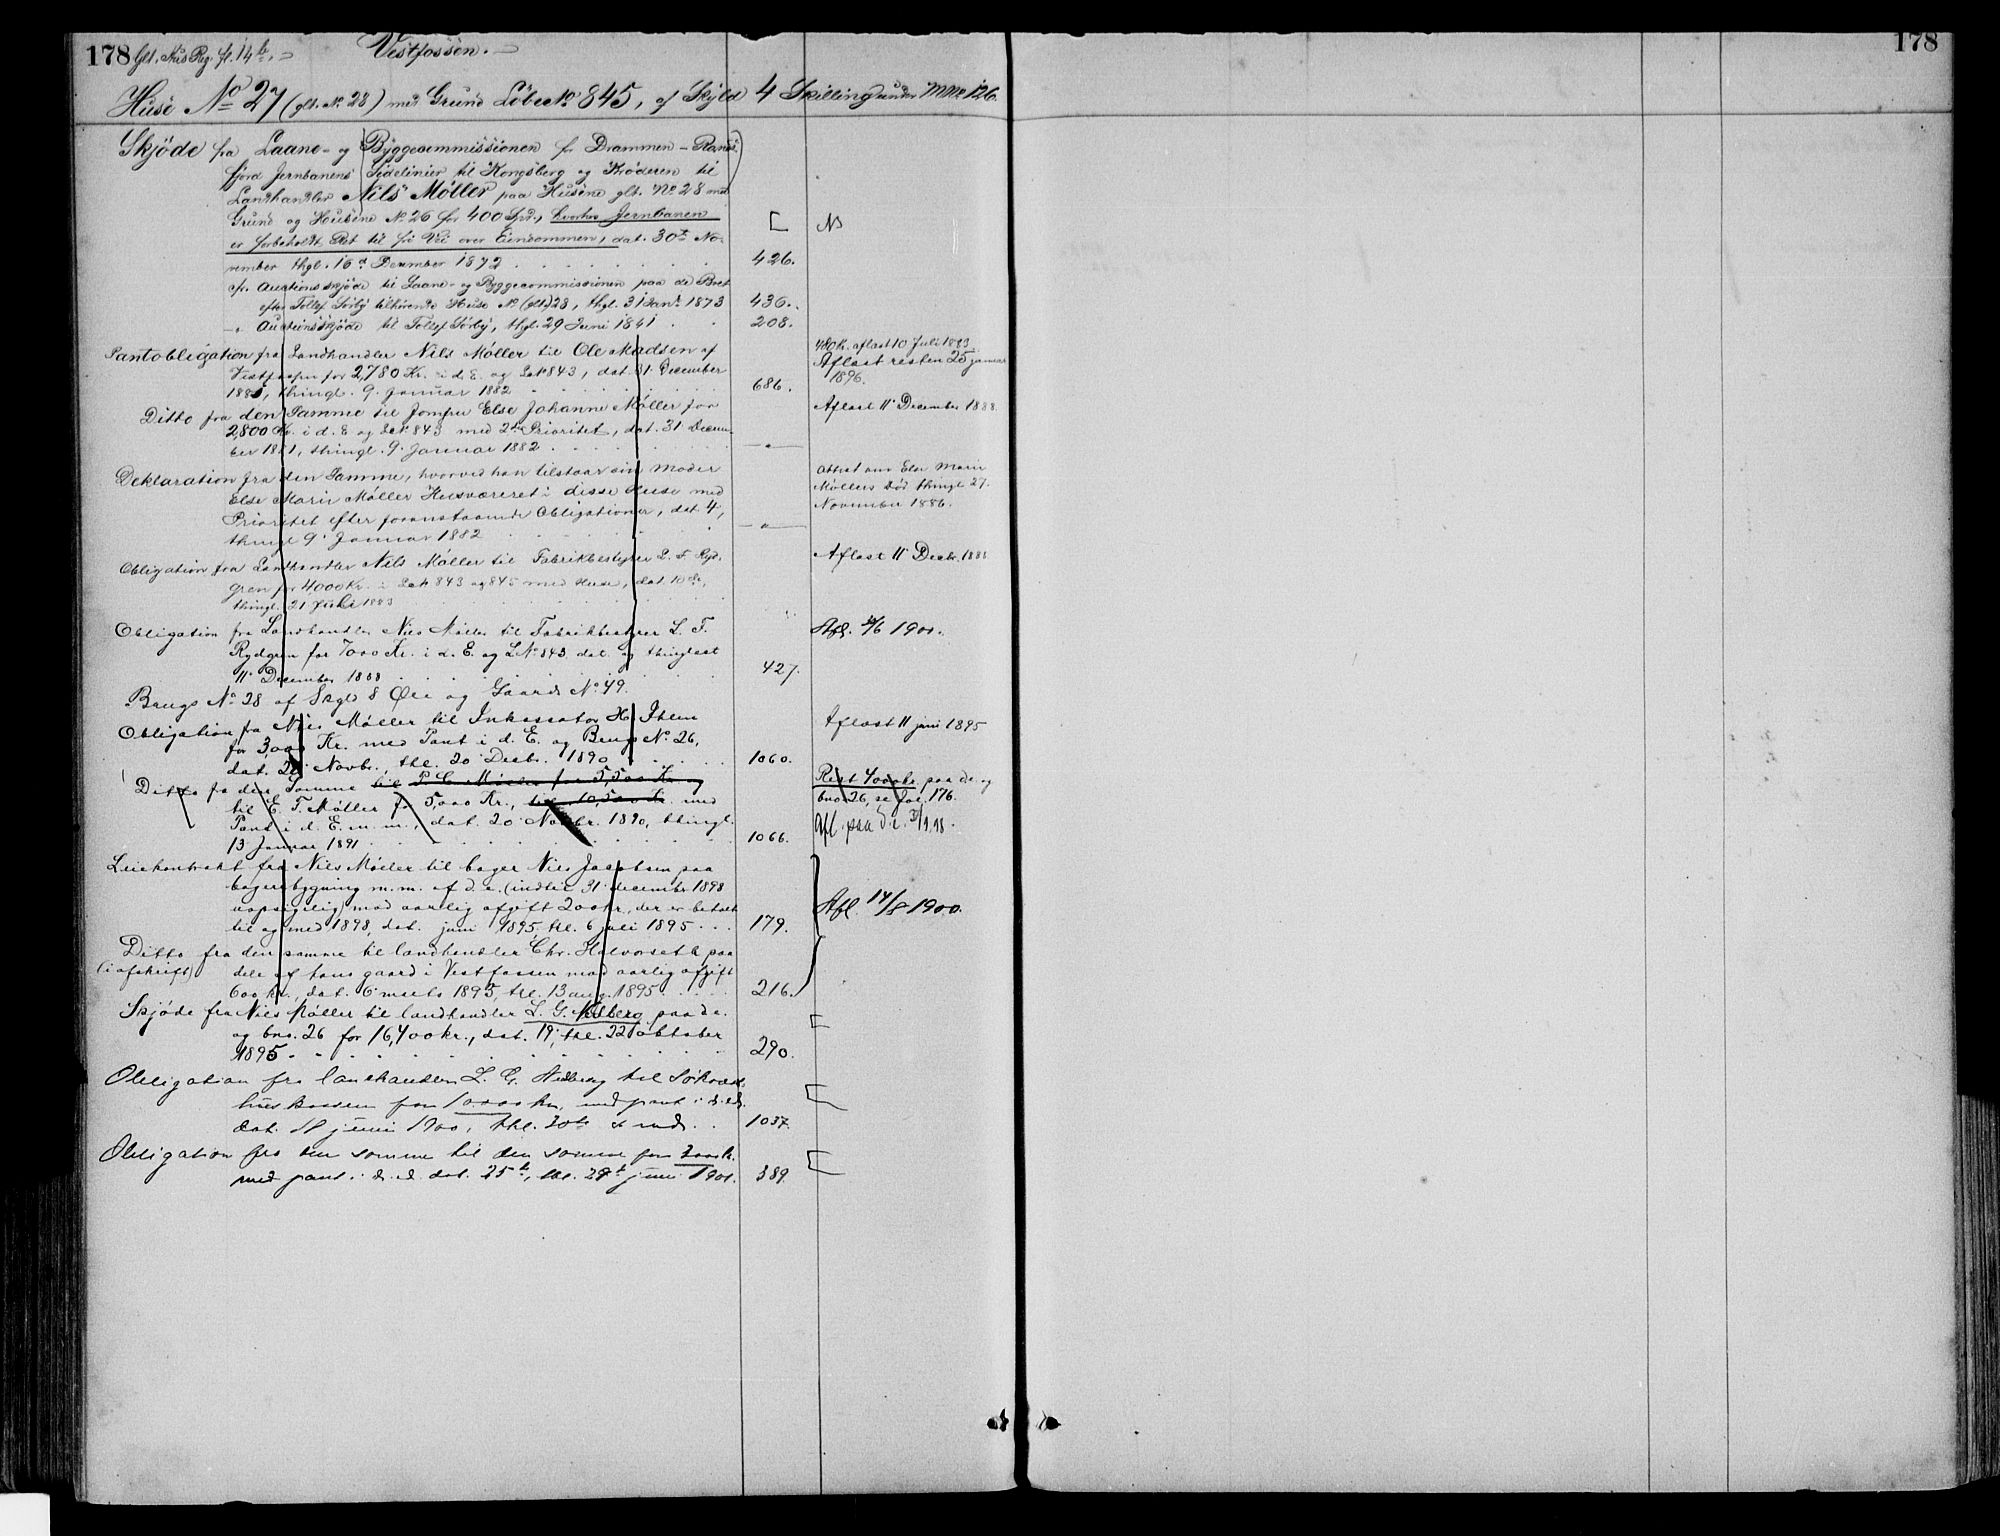 178 Glt. Hus Reg. fl. 14b. Vestfossen. 178
Huse No 27 (glt. No 28) med Grund Löbe No 845, af Skyld 4 Skilling under MNo 126.
Skjöde fra Laane- og Byggecommissionen for Drammen-Rands-
fjord Jernbanens Sidelinier til Kongsberg og Kröderen til
Landhandler Nils Møller paa Husene glt. No 28 med
Grund og Husene No 26 for 400 Spd., hvorhos Jernbanen
er forbeholdt Ret til fri Vei over Eiendommen, dat. 30te No-
vember thgl. 16d December 1872 426. NB
cfr. Auctionsskjöde til Laane- og Byggecommissionen paa de Bret
efter Tollef Sörby tilhørende Huse No (glt.) 28, thgl. 31 Janr. 1873 436.
-"- Auctionsskjöde til Tollef Sörby, thgl. 29 Juni 1841 208.
Pantobligation fra Landhandler Nils Møller til Ole Madsen af
Vestfossen for 2,780 Kr. i d. E. og LNo 843, dat. 31 December
1881, thingl. 9. Januar 1882 686.
480 Kr. aflæst 10 Juli 1883.
Aflæst resten 25 januar
1896.
Ditto fra den Samme til Jomfru Else Johanne Møller for
2,800 Kr. i d. E og LNo 843 med 2den Prioritet, dat. 31 Decem-
ber 1881, thingl. 9. Januar 1882 -"-
Aflæst 11' December 1888.
Deklaration fra den Samme, hvorved han tilstaar sin Moder
Else Marie Møller Husværeret i disse Huse med
Prioritet efter foranstaaende Obligationer, dat. 4,
thingl 9' Januar 1882 -"-
Attest om Else Marie
Møllers Død thingl 27.
November 1886.
Obligation fra Landhandler Nils Møller til Fabrikbestyrer L. F. Ryd-
gren for 4000 Kr. i LNo 843 og 845 med Huse, dat. 10de,
thingl. 21 Juli 1883
Aflæst 11' Decbr. 1888
Obligation fra Landhandler Nils Møller til Fabrikbestyrer L. F.
Rydgren for 7000 Kr. i d. E. og LNo 843 dat. og thinglæst
11' December 1888 427.
Afl. 1900.
Brugs No 28 af Skyld 8 Øre og Gaards No 49.
Obligation fra Nils Møller til Inkassator H. Ihlen
for 3000 Kr. med Pant i d. E. og Brugs No 26,
dat. 20' Novbr. thl. 20' Decbr. 1890 1060.
Aflæst 11 juni 1895
Ditto fra den Samme til P. C. Møller for 5,500 Kr. og
til E. T. Møller for 5000 Kr., tils. 10,500 Kr. med
Pant i d. E. m. m., dat. 20' Novbr. 1890, thingl.
13' Januar 1891 1066.
Rest 4000 kr. paa de. og
bno 26, se fol. 176.
Afl. paa d. e. 98.
Leiekontrakt fra Nils Møller til bager Nils Jacobsen paa
bageribygning m. m. af d. e. (indtil 31' december 1898
uopsigelig) mod aarlig afgift 200 kr., der er betalt
til og med 1898, dat. juni 1895, thl. 6 juli 1895 179.
Afl. 14/8 1900.
Ditto fra den samme til landhandler Chr. Halvorseth paa
(i afskrift) dele af hans gaard i Vestfossen mod aarlig afgift
600 kr., dat. 6' marts 1895, thl. 13 aug. 1895 216.
Skjöde fra Nils Møller til landhandler L. G. Hedberg paa de.
og bno. 26 for 16,400 kr., dat. 19', thl. 22' oktober
1895 290.
Obligation fra landhandler L. G. Hedberg til
huskassen for 10000 kr. med pant i d. ed.
dat. 18 juni 1900, thl. 30te s. md. 1037.
Obligation fra den samme til den samme for 3000 kr.
med pant i d. ed. dat. 25t, thl. 28t juni 1901. 389.